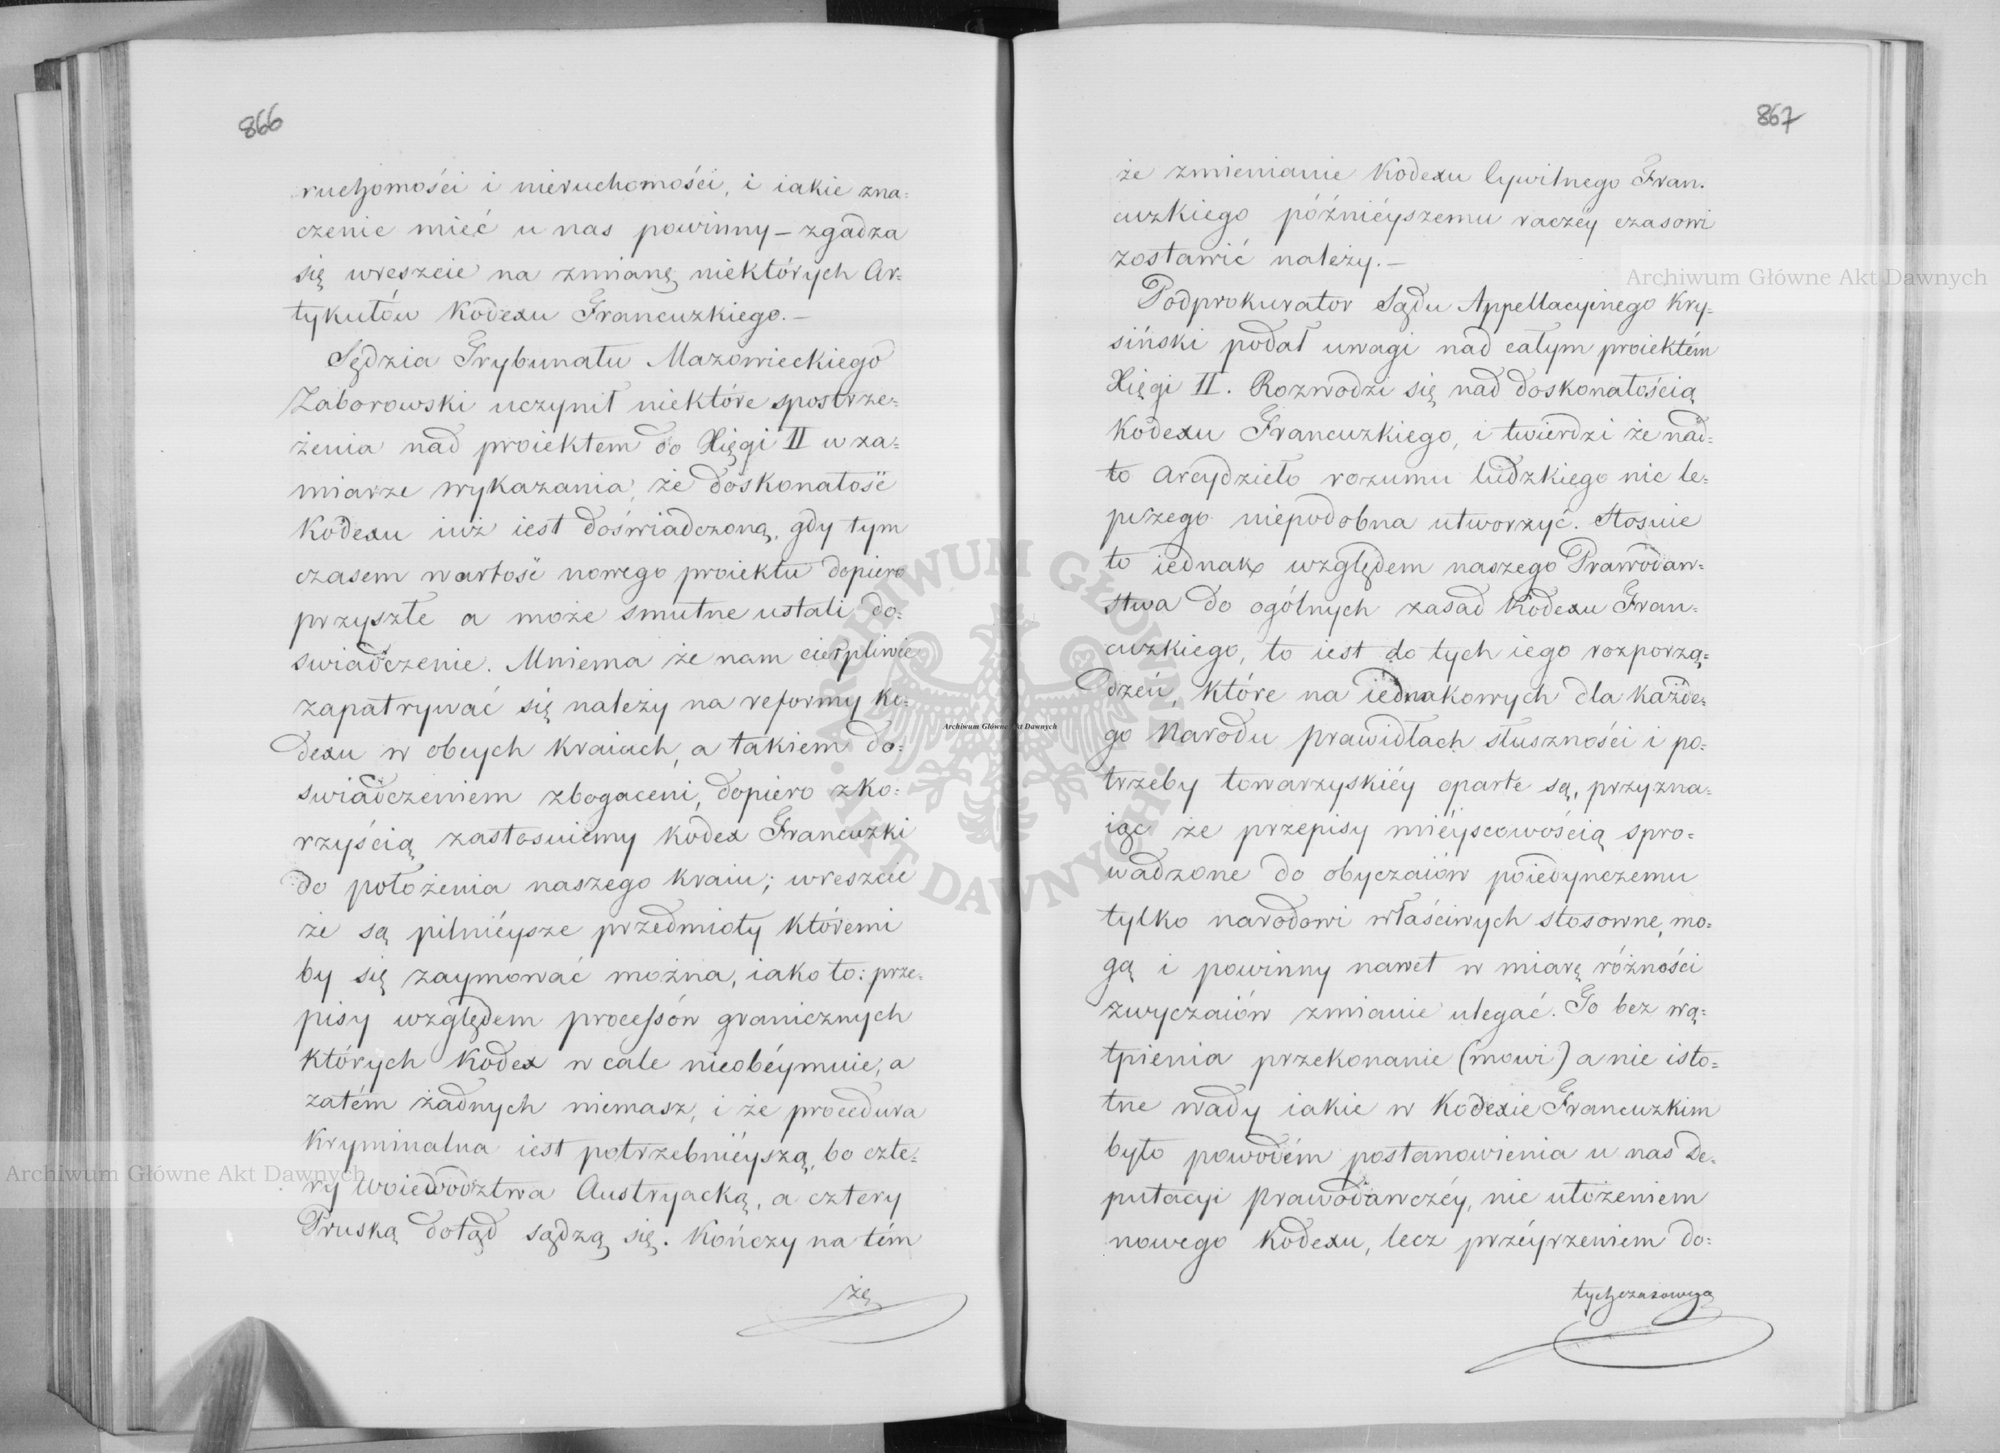 866
ruchomości i nieruchomości, i iakie zna=
czenie mieć u nas powinny – zgadza
się wreszcie na zmianę niektórych Ar=
tykułów Kodexu Francuzkiego. –
Sędzia Trybunału Mazowieckiego
Zaborowski uczynił niektóre spostrze=
żenia nad proiektem do Xięgi II w za=
miarze wykazania, że doskonałość
Kodexu iuż iest doświadczoną, gdy tym
czasem wartość nowego proiektu dopiero
przyszłe a może smutne ustali do=
swiadczenie. Mniema że nam cierpliwie
zapatrywać się należy na reformy Ko=
dexu w obcych Kraiach, a takiem do=
swiadczeniem zbogaceni, dopiero zko=
rzyścią zastosuiemy Kodex Francuzki
do położenia naszego Kraiu; wreszcie
że są pilniéysze przedmioty któremi
by się zaymować można, iako to: prze=
pisy względem processów granicznych
których Kodex w cale nieobéymuie, a
zatém żadnych niemasz, i że procedura
Kryminalna iest potrzebniéyszą, bo czte=
ry woiewodztwa Austryacką, a cztery
Pruską dotąd sądzą się. Kończy na tém
że
867
że zmienianie Kodexu Cywilnego Fran.
cuzkiego późniéyszemu raczéy czasowi
zostawić należy. –
Podprokurator Sądu Appellacyinego Kry=
siński podał uwagi nad całym proiektem
Xięgi II. Rozwodzi się nad doskonałością
Kodexu Francuzkiego, i twierdzi że nad=
to arcydzieło rozumu ludzkiego nic le=
pszego niepodobna utworzyć. Stosuie
to iednak względem naszego Prawodaw=
stwa do ogólnych zasad Kodexu Fran=
cuzkiego, to iest do tych iego rozporzą=
dzeń, które na iednakowych dla każde=
go Narodu prawidłach słuszności i po=
trzeby towarzyskiéy oparte są, przyzna=
iąc że przepisy miéyscowością spro=
wadzone do obyczaiów poiedynczemu
tylko narodowi właściwych stosowne, mo=
gą i powinny nawet w miarę różności
zwyczaiów zmianie ulegać. To bez wą=
tpienia przekonanie (mowi) a nie isto=
tne wady iakie w Kodexie Francuzkim
było powodém postanowienia u nas De=
putacyi Prawodawczéy, nie ułożeniem
nowego Kodexu, lecz przéyrzeniem do=
tychczasowego
Archiwum Główne Akt Dawnych
Archiwum Główne Akt Dawnych
Archiwum Główne Akt Dawnych
ARCHIWUM GŁÓWNE AKT DAWNYCH